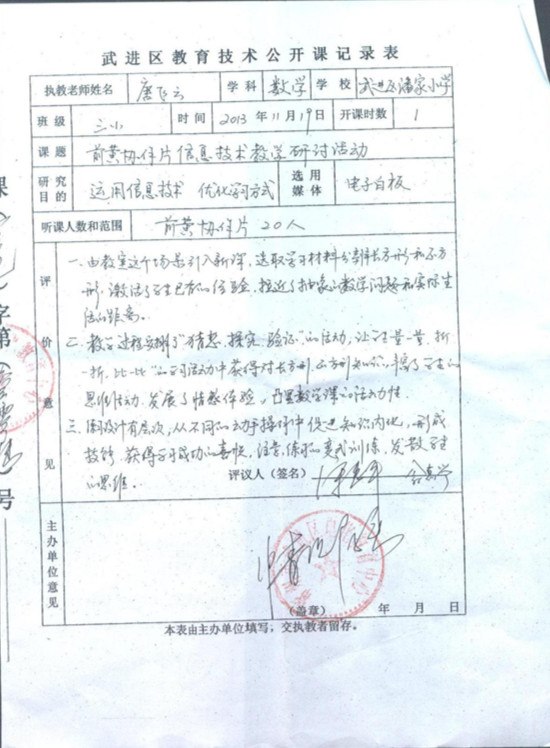 武进区教育技术公开课记录表
执教老师姓名 唐飞云 学科 数学 学校 武进区潘家小学
班级 三 时间 2013年11月19日 开课时数 1
课题 前黄协作片信息技术教学研讨活动
研究目的 运用信息技术 优化学习方式 选用媒体 电子白板
听课人数和范围 前黄协作片 20人
评价意见
一、由教室这个场景引入新课,选取学习材料分辨长方形和正方
形,激活了学生已有的经验,拉近了抽象的数学问题和实际生
活的距离。
二、教学过程安排了"猜想、探究、验证"的活动,让学生量一量、折一
折、比一比,在活动中获得对长方形、正方形知识,丰富了学生的
思维活动,发展了情感体验,凸显数学课的活动性。
三、设计有层次,从不同的动手操作中促进知识内化,形成
技能,获得学习成功的喜悦,注意练习的变式训练,发散学生
的思维。
评议人(签名)
主办单位意见
(盖章) 年 月 日
本表由主办单位填写,交执教者留存。
课
字第
号